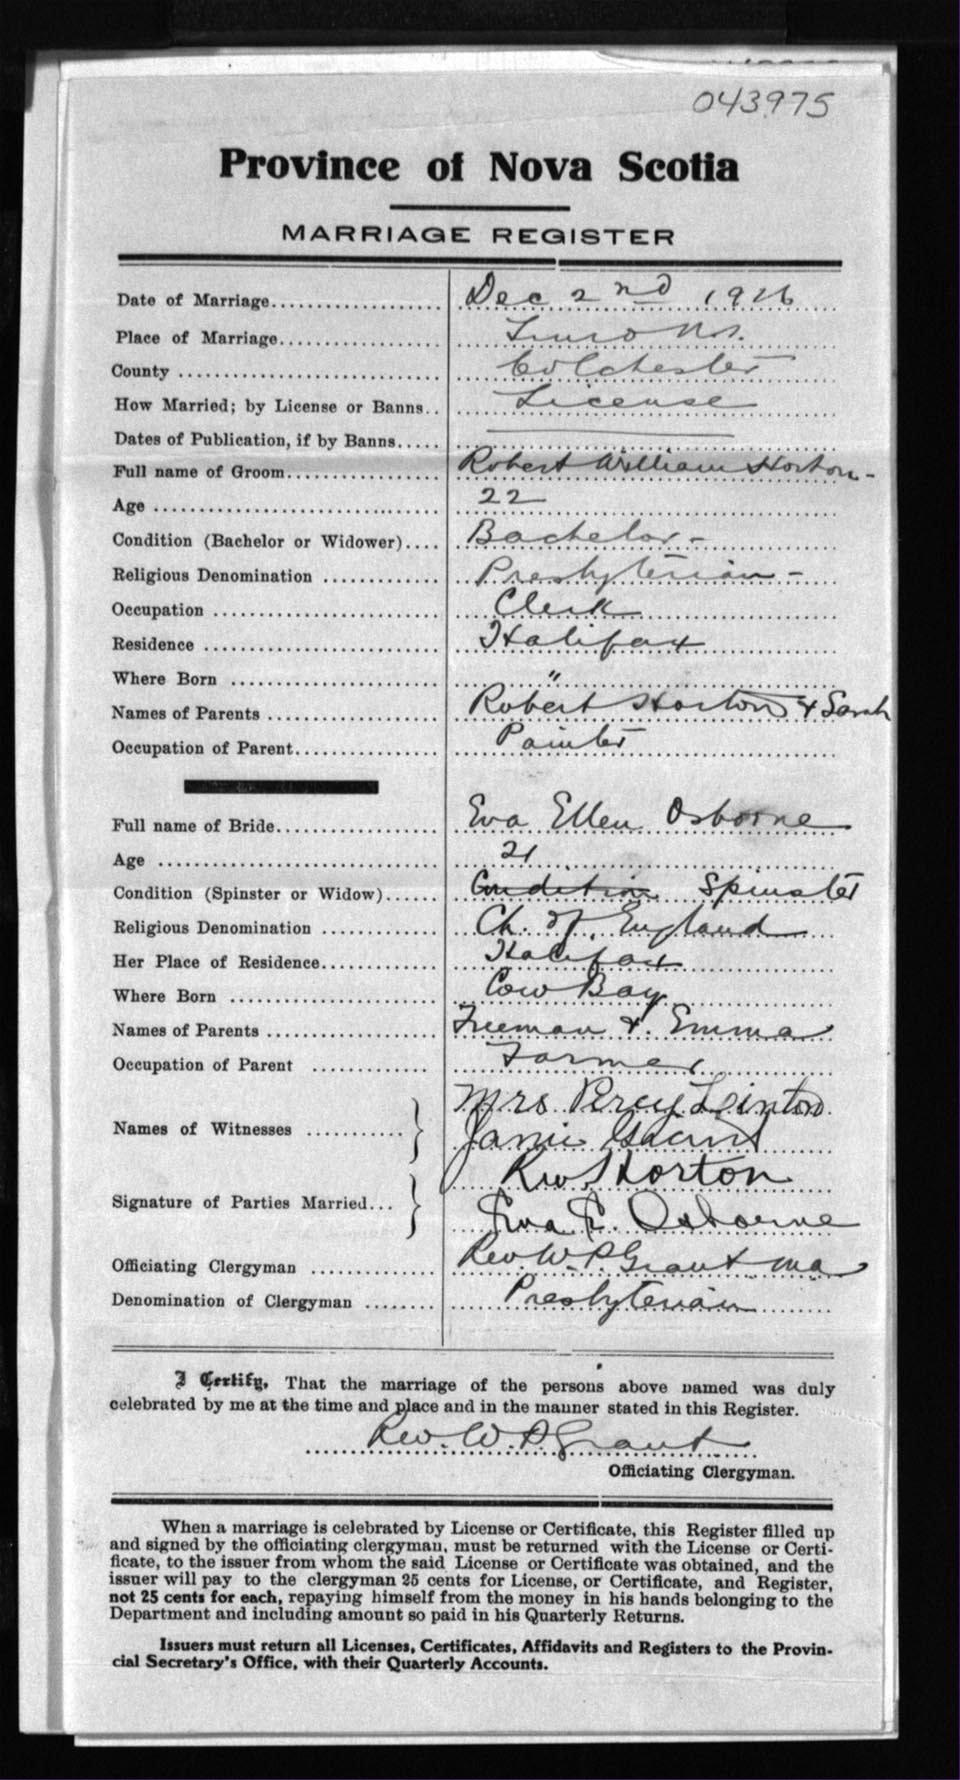 043975
Province of Nova Scotia
MARRIAGE REGISTER
Date of Marriage.................... Dec 2nd 1916
Place of Marriage................... Truro N.S.
County ............................. Colchester
How Married; by License or Banns.. License
Dates of Publication, if by Banns.....
Full name of Groom.................. Robert William Horton -
Age ................................ 22
Condition (Bachelor or Widower).... Bachelor -
Religious Denomination ............. Presbyterian -
Occupation ......................... Clerk
Residence .......................... Halifax
Where Born ......................... "
Names of Parents ................... Robert Horton & Sarah
Occupation of Parent................ Painter
Full name of Bride.................. Eva Ellen Osborne
Age ................................ 21
Condition (Spinster or Widow)...... Condition Spinster
Religious Denomination ............. Ch. of England
Her Place of Residence.............. Halifax
Where Born ......................... Cow Bay
Names of Parents ................... Freeman & Emma
Occupation of Parent ............... Farmer
Names of Witnesses ........... } Mrs Percy Linton
Janie Grant
Signature of Parties Married... } RW Horton
Eva E. Osborne
Officiating Clergyman .............. Rev. W. P. Grant MA
Denomination of Clergyman ........ Presbyterian
I Certify, That the marriage of the persons above named was duly
celebrated by me at the time and place and in the manner stated in this Register.
Rev. W. P. Grant
Officiating Clergyman.
When a marriage is celebrated by License or Certificate, this Register filled up
and signed by the officiating clergyman, must be returned with the License or Certi-
ficate, to the issuer from whom the said License or Certificate was obtained, and the
issuer will pay to the clergyman 25 cents for License, or Certificate, and Register,
not 25 cents for each, repaying himself from the money in his hands belonging to the
Department and including amount so paid in his Quarterly Returns.
Issuers must return all Licenses, Certificates, Affidavits and Registers to the Provin-
cial Secretary's Office, with their Quarterly Accounts.